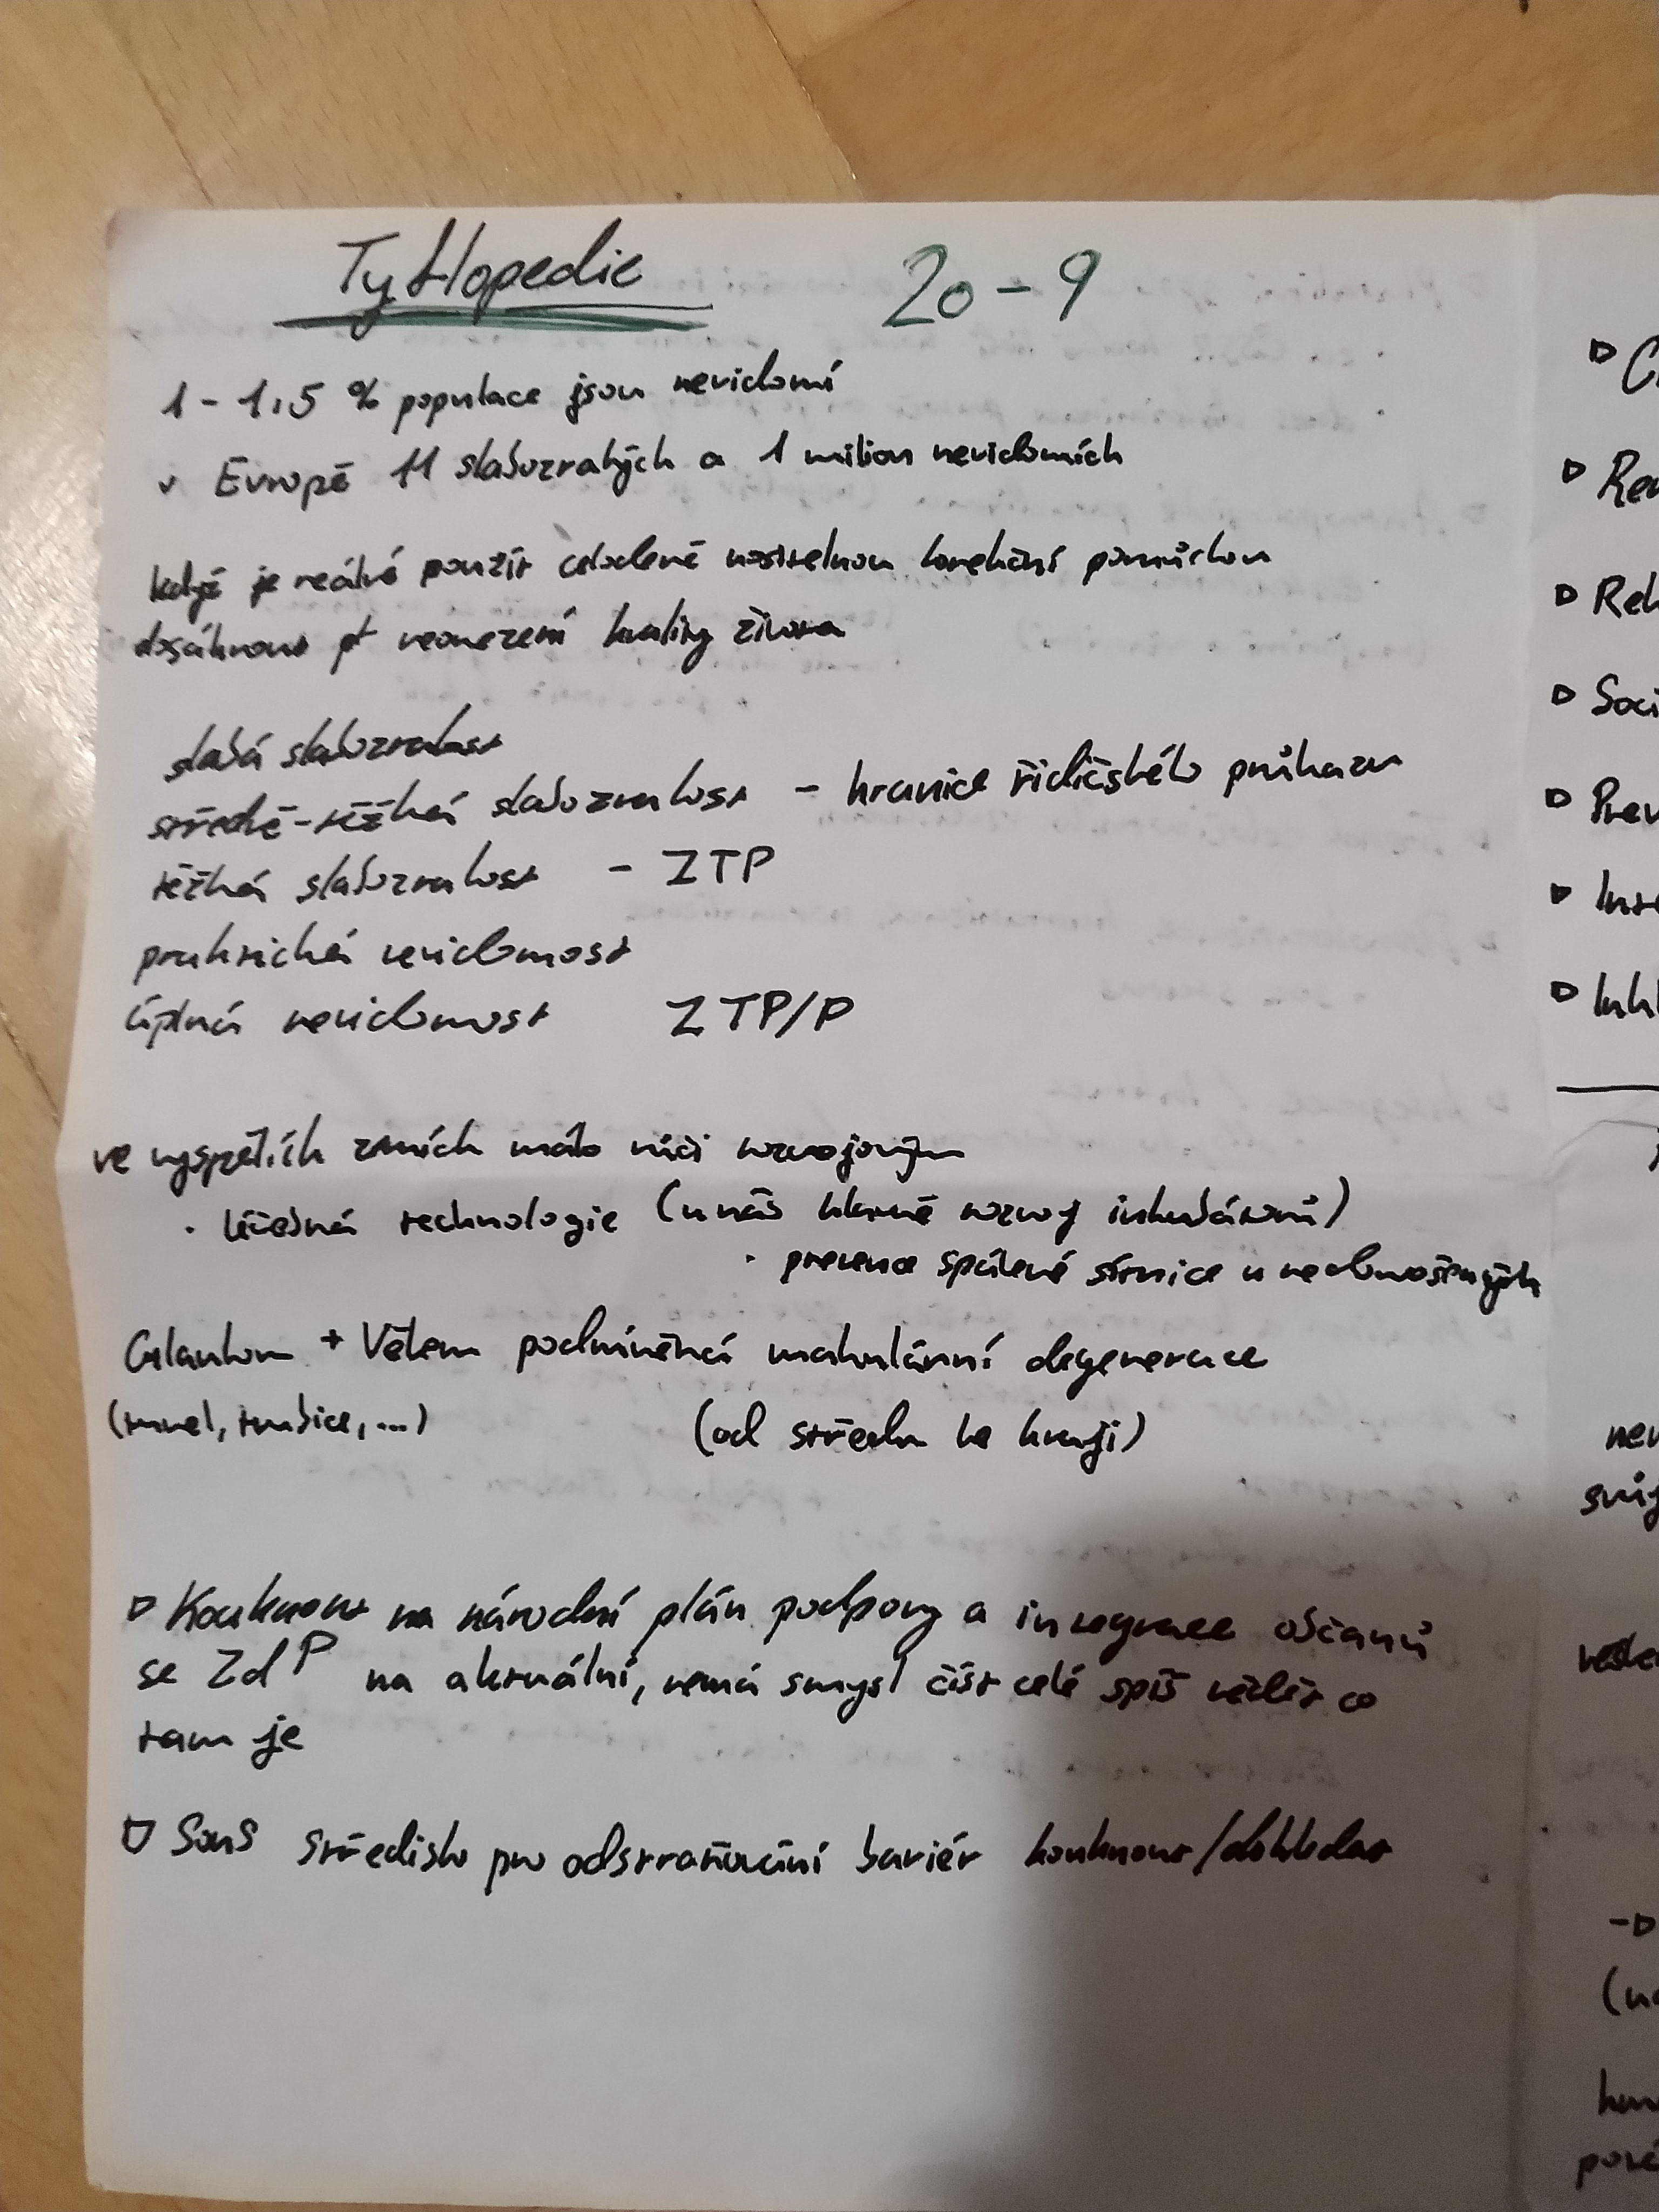 Tyflopedie 20-9
1-1,5 % populace jsou nevidomí
v Evropě 11 slabozrakých a 1 milion nevidomích
když je reálné použít celodeně nositelnou korekční pomůckou
dosáhnout neomezení kvality života
slabá slabozrakost
středě-těžká slabozrakost - hranice řidičského průkazu
těžká slabozrakost - ZTP
praktická nevidomost
úplná nevidomost ZTP/P
ve vyspělích zemích málo vůči rozvojovým
· léčebná technologie (u nás hlavně rozvoj inkubátorů)
· prevence spálené sítnice u nedonošených
Glaukom + Věkem podmíněná makulární degenerace
(tunel, trubice, ...) (od středu ke kraji)
Kouknout na národní plán podpory a integrace občanů
se ZdP na aktuální, nemá smysl číst celé spíš vědět co
tam je
SONS Středisko pro odstraňování bariér kouknout/dohledat